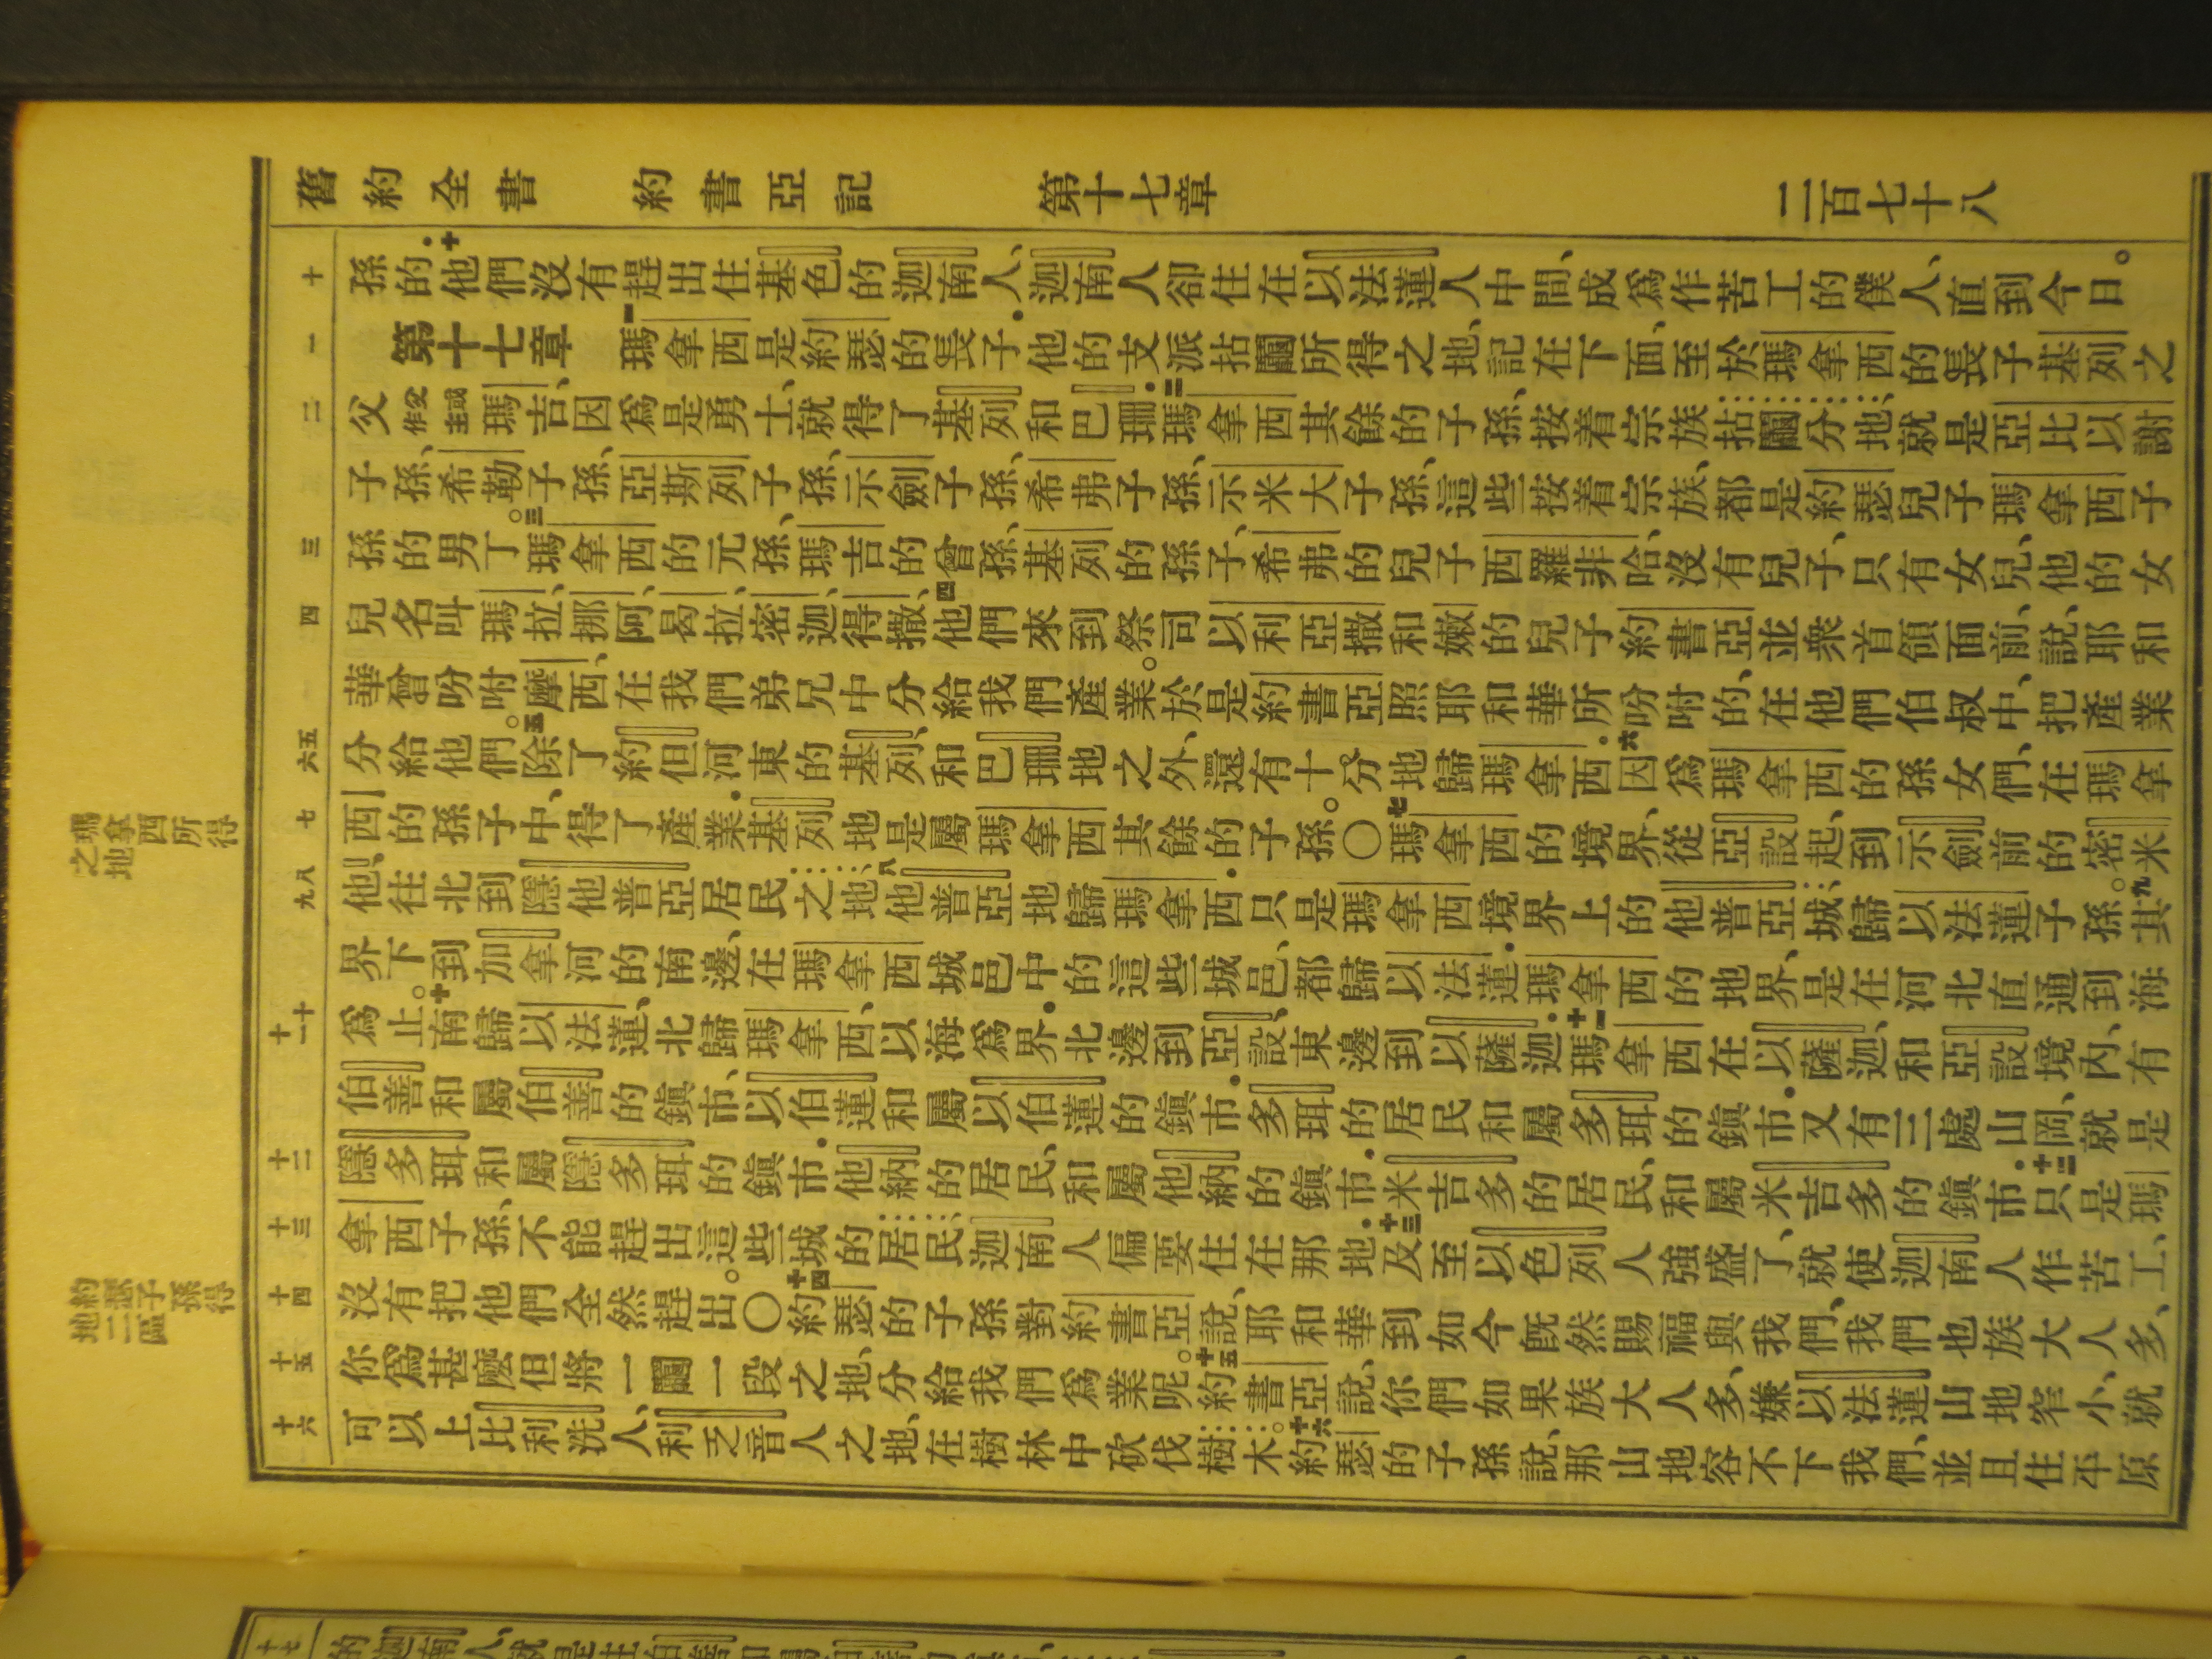 舊約全書　約書亞記　第十七章　二百七十八
十
孫的．十他們沒有趕出住基色的迦南人、迦南人卻住在以法蓮人中間、成爲作苦工的僕人、直到今日。
一
第十七章　一瑪拿西是約瑟的長子．他的支派拈鬮所得之地、記在下面、至於瑪拿西的長子基列之
二
父父或作主瑪吉、因爲是勇士、就得了基列和巴珊．二瑪拿西其餘的子孫、按着宗族拈鬮分地、就是亞比以謝
子孫、希勒子孫、亞斯列子孫、示劍子孫、希弗子孫、示米大子孫、這些按着宗族、都是約瑟兒子瑪拿西子
三
孫的男丁。三瑪拿西的元孫、瑪吉的曾孫、基列的孫子、希弗的兒子西羅非哈、沒有兒子、只有女兒、他的女
四
兒名叫瑪拉、挪阿、曷拉、密迦、得撒、四他們來到祭司以利亞撒和嫩的兒子約書亞並衆首領面前、說、耶和
華曾吩咐摩西、在我們弟兄中分給我們產業。於是約書亞照耶和華所吩咐的、在他們伯叔中、把產業
五
六
分給他們。五除了約但河東的基列、和巴珊地之外、還有十分地歸瑪拿西．六因爲瑪拿西的孫女們、在瑪拿
七
西的孫子中、得了產業．基列地是屬瑪拿西其餘的子孫。〇七瑪拿西的境界、從亞設起、到示劍前的密米
八
九
他、往北到隱他普亞居民之地．八他普亞地歸瑪拿西．只是瑪拿西境界上的他普亞城、歸以法蓮子孫。九其
界下到加拿河的南邊、在瑪拿西城邑中的這些城邑、都歸以法蓮．瑪拿西的地界、是在河北直通到海
十
十一
爲止。十南歸以法蓮、北歸瑪拿西、以海爲界．北邊到亞設、東邊到以薩迦．十一瑪拿西在以薩迦、和亞設境內、有
伯善和屬伯善的鎮市、以伯蓮和屬以伯蓮的鎮市．多珥的居民和屬多珥的鎮市．又有三處山岡、就是
十二
隱多珥和屬隱多珥的鎮市．他納的居民、和屬他納的鎮市．米吉多的居民、和屬米吉多的鎮市．十二只是瑪
十三
拿西子孫、不能趕出這些城的居民、迦南人偏要住在那地．十三及至以色列人強盛了、就使迦南人作苦工、
十四
沒有把他們全然趕出。〇十四約瑟的子孫對約書亞說、耶和華到如今既然賜福與我們、我們也族大人多、
十五
你爲甚麼但將一鬮一段之地、分給我們爲業呢。十五約書亞說、你們如果族大人多、嫌以法蓮山地窄小、就
十六
可以上比利洗人、利乏音人之地、在樹林中砍伐樹木。十六約瑟的子孫說、那山地容不下我們、並且住平原
瑪拿西所得
之地
約瑟子孫得
地二區
十七
的迦南人、就是住